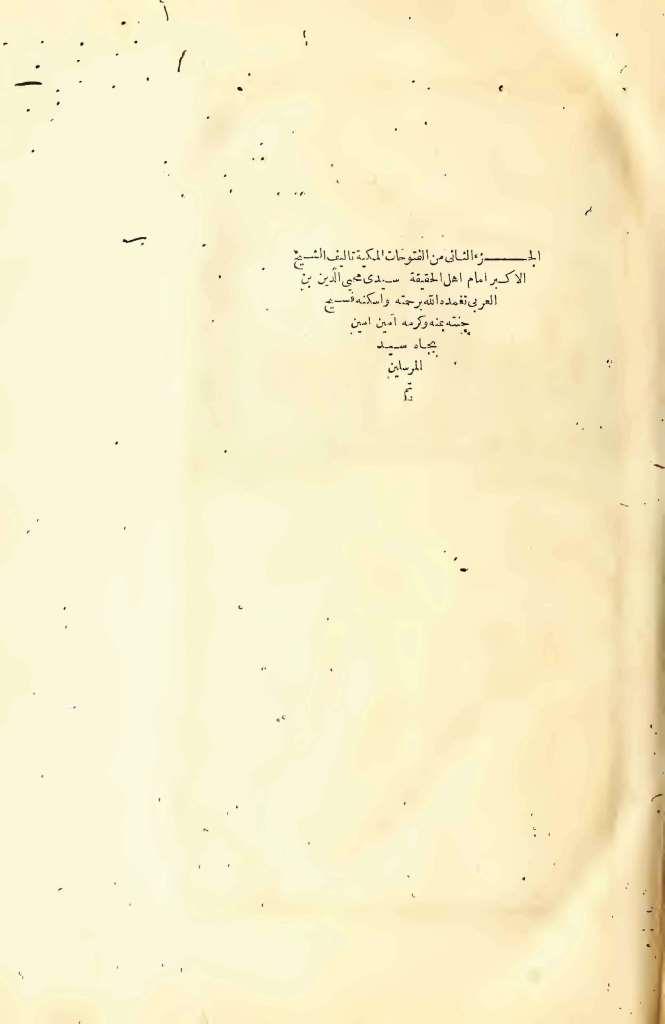 الجـــــزء الثانى من الفتوحات المكية تاليف الشـيخ
الاكـبر امام اهل الحقيقة سـيدى محيي الدين بن
العربي تغمده الله برحمته واسكنه فسـيح
جنته بمنه وكرمه آمين امين
بجاه سـيد
المرسلين
تم